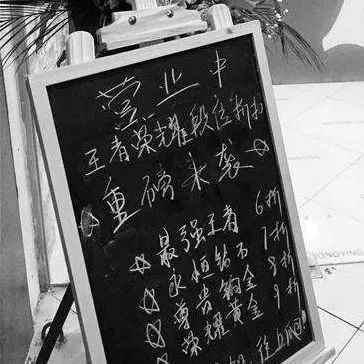 营业中
王者荣耀段位折扣
重磅来袭
最强王者 6折
永恒钻石 7折
尊贵铂金 8折
荣耀黄金 9折
YONGYING